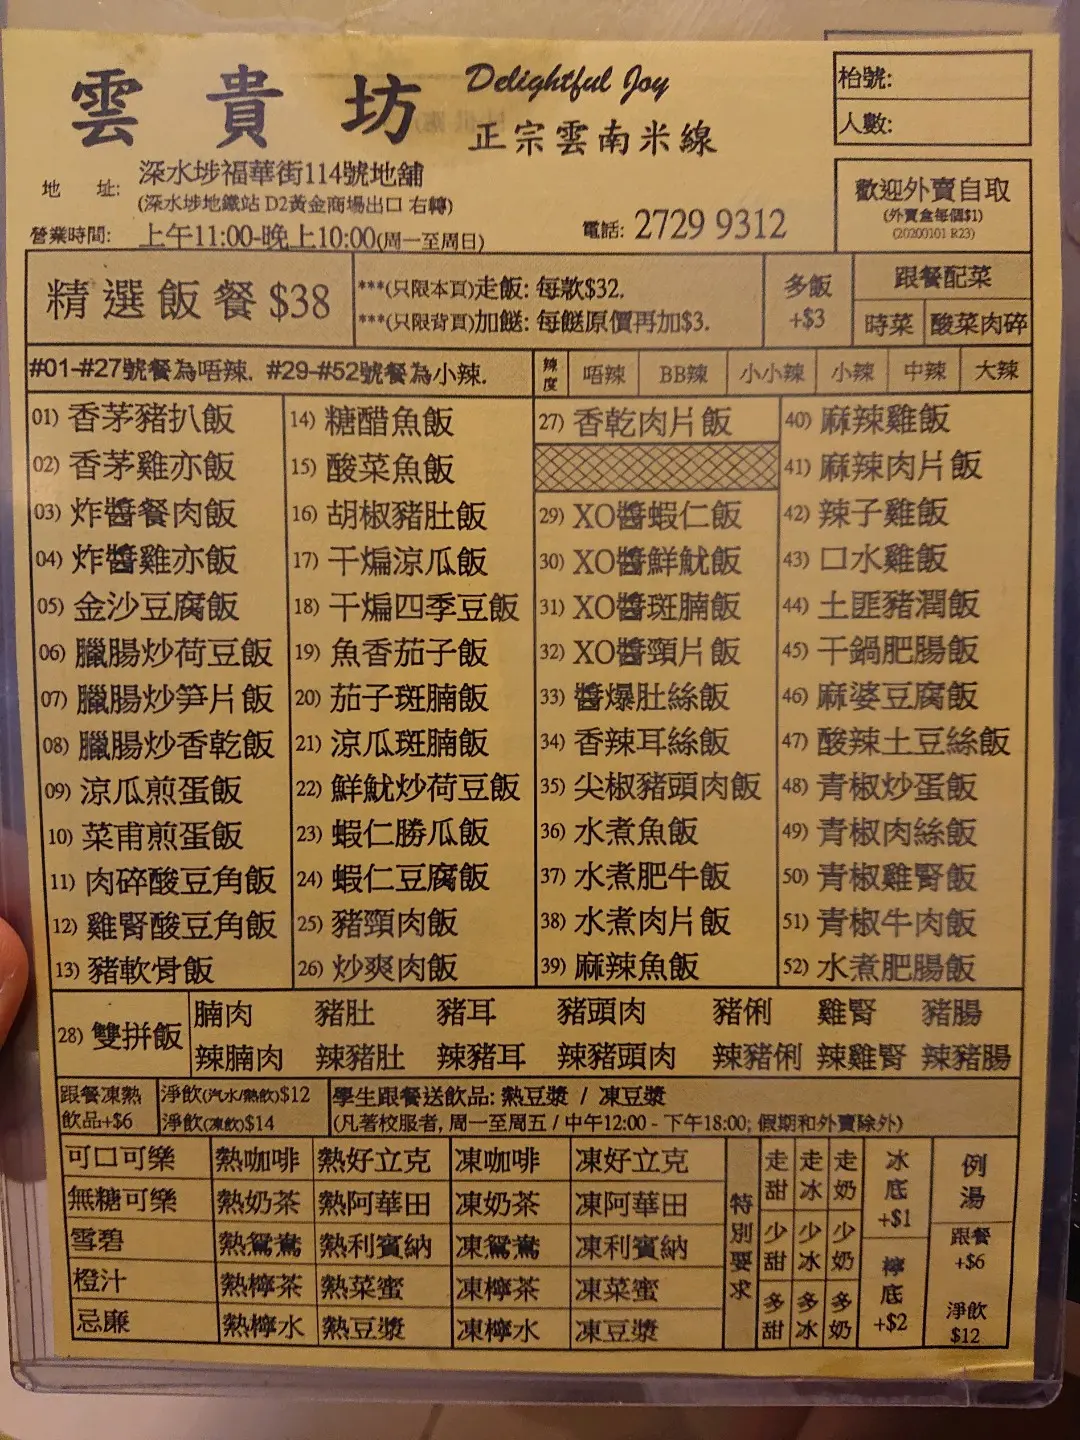 雲貴坊
Delightful Joy
正宗雲南米線
枱號:
人數:
地 址: 深水埗福華街114號地舖
(深水埗地鐵站 D2黃金商場出口 右轉)
營業時間: 上午11:00-晚上10:00(周一至周日)
電話: 2729 9312
歡迎外賣自取
(外賣盒每個$1)
(20200101 R23)
精選飯餐 $38
***(只限本頁)走飯: 每款$32.
***(只限背頁)加餸: 每餸原價再加$3.
多飯
+$3
跟餐配菜
時菜 酸菜肉碎
#01-#27號餐為唔辣. #29-#52號餐為小辣.
辣度 唔辣 BB辣 小小辣 小辣 中辣 大辣
01) 香茅豬扒飯
02) 香茅雞亦飯
03) 炸醬餐肉飯
04) 炸醬雞亦飯
05) 金沙豆腐飯
06) 臘腸炒荷豆飯
07) 臘腸炒笋片飯
08) 臘腸炒香乾飯
09) 涼瓜煎蛋飯
10) 菜甫煎蛋飯
11) 肉碎酸豆角飯
12) 雞腎酸豆角飯
13) 豬軟骨飯
14) 糖醋魚飯
15) 酸菜魚飯
16) 胡椒豬肚飯
17) 干煸涼瓜飯
18) 干煸四季豆飯
19) 魚香茄子飯
20) 茄子斑腩飯
21) 涼瓜斑腩飯
22) 鮮魷炒荷豆飯
23) 蝦仁勝瓜飯
24) 蝦仁豆腐飯
25) 豬頸肉飯
26) 炒爽肉飯
27) 香乾肉片飯
29) XO醬蝦仁飯
30) XO醬鮮魷飯
31) XO醬斑腩飯
32) XO醬頸片飯
33) 醬爆肚絲飯
34) 香辣耳絲飯
35) 尖椒豬頭肉飯
36) 水煮魚飯
37) 水煮肥牛飯
38) 水煮肉片飯
39) 麻辣魚飯
40) 麻辣雞飯
41) 麻辣肉片飯
42) 辣子雞飯
43) 口水雞飯
44) 土匪豬潤飯
45) 干鍋肥腸飯
46) 麻婆豆腐飯
47) 酸辣土豆絲飯
48) 青椒炒蛋飯
49) 青椒肉絲飯
50) 青椒雞腎飯
51) 青椒牛肉飯
52) 水煮肥腸飯
28) 雙拼飯
腩肉 豬肚 豬耳 豬頭肉 豬脷 雞腎 豬腸
辣腩肉 辣豬肚 辣豬耳 辣豬頭肉 辣豬脷 辣雞腎 辣豬腸
跟餐凍熱
飲品+$6
淨飲(汽水/熱飲)$12
淨飲(凍飲)$14
學生跟餐送飲品: 熱豆漿 / 凍豆漿
(凡著校服者, 周一至周五 / 中午12:00 - 下午18:00; 假期和外賣除外)
可口可樂 熱咖啡 熱好立克 凍咖啡 凍好立克
無糖可樂 熱奶茶 熱阿華田 凍奶茶 凍阿華田
雪碧 熱鴛鴦 熱利賓納 凍鴛鴦 凍利賓納
橙汁 熱檸茶 熱菜蜜 凍檸茶 凍菜蜜
忌廉 熱檸水 熱豆漿 凍檸水 凍豆漿
特別要求
走甜 走冰 走奶
少甜 少冰 少奶
多甜 多冰 多奶
冰底
+$1
檸底
+$2
例湯
跟餐
+$6
淨飲
$12